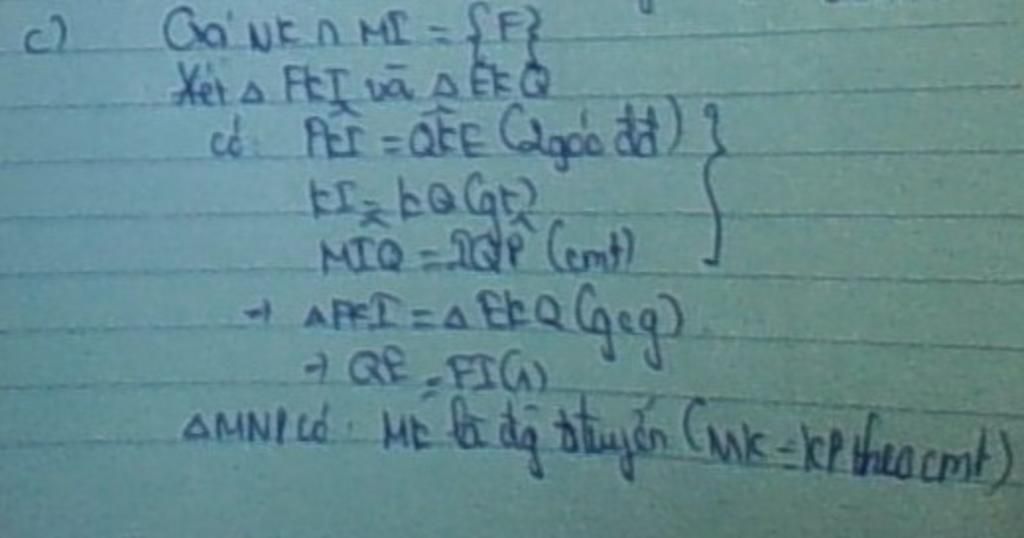 c) Gọi NK ∩ MI = {F}
Xét Δ FKI và Δ EKQ
có: FKI = QKE (2góc đđ)
KI = KQ (gt)
MIQ = IQP (cmt)
→ ΔFKI = Δ EKQ (gcg)
→ QE = FI (1)
ΔMNI có: MK là đg ttuyến (MK = KP theo cmt)